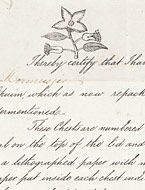 Thereby certify that I have
Opium, which as now repack
termentioned.
These Chests are numbered
al on the top of the lid and
a lithographed paper with m
aper put inside each chest indi